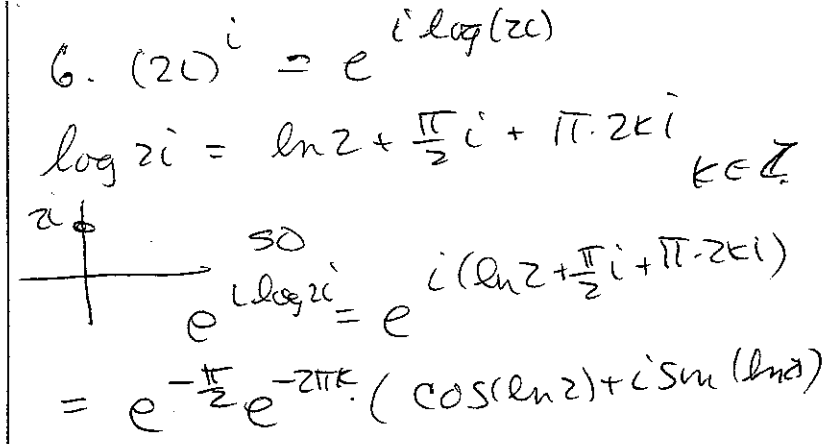 6. (2i)^i = e^{i log(2i)}
log 2i = ln 2 + π/2 i + π·2ki k∈ℤ
2i
so
e^{i log 2i} = e^{i(ln 2 + π/2 i + π·2ki)}
= e^{-π/2} e^{-2πk}·(cos(ln 2) + i sin(ln 2)